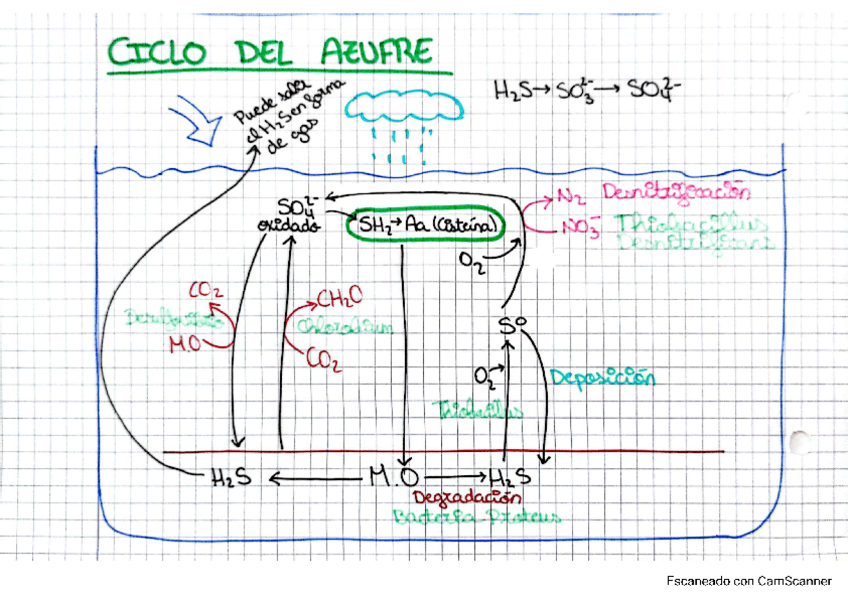 CICLO DEL AZUFRE
H₂S→SO₃²⁻→SO₄²⁻
Puede salir
el H₂S en forma
de gas
SO₄²⁻
oxidado
SH₂→Aa (Cisteína)
N₂ Desnitrificación
NO₃⁻ Thiobacillus
Denitrificans
O₂
CO₂
CH₂O
Chlorobium
M.O
CO₂
S⁰
O₂
Deposición
Thiobacillus
H₂S
M.O
H₂S
Degradación
Bacteria Proteus
Escaneado con CamScanner